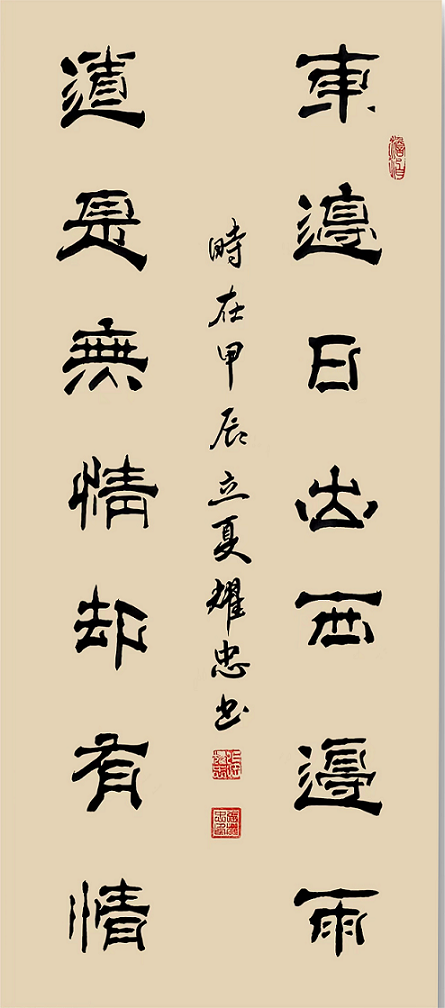 東邉日出西邉雨
道是無情却有情
時在甲辰立夏耀忠书